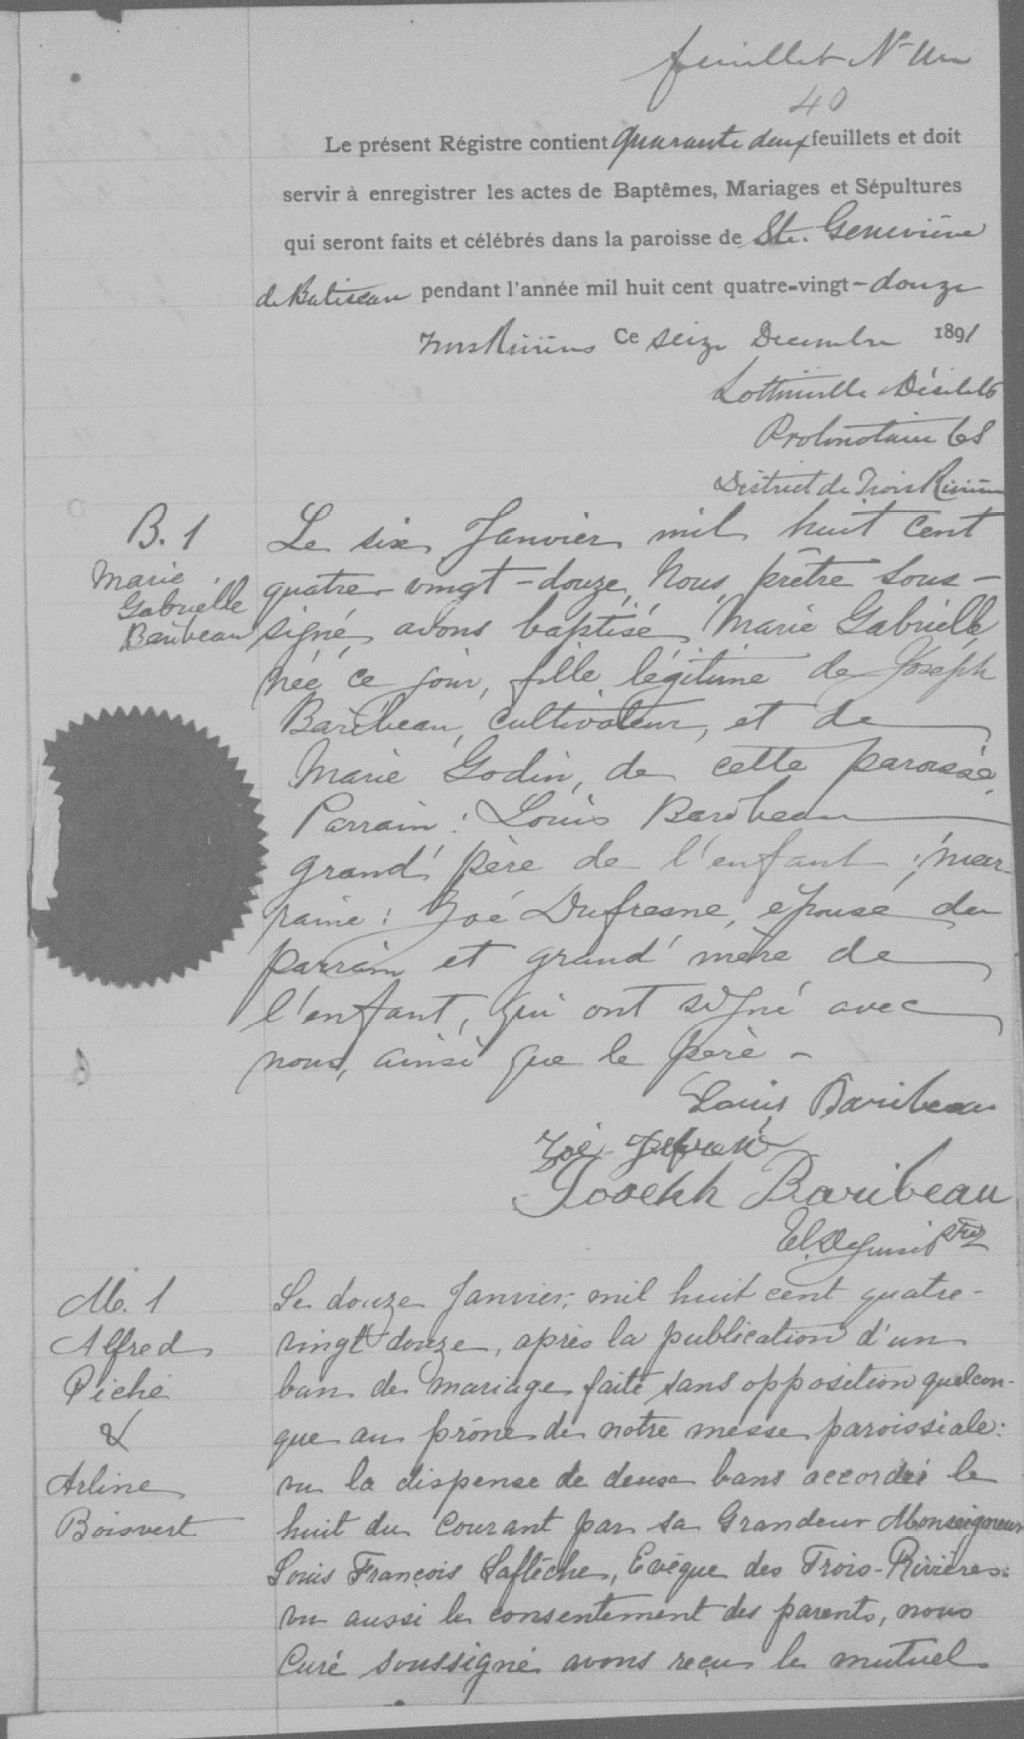 feuillet No Un
40
Le présent Régistre contient quarante deux feuillets et doit
servir à enregistrer les actes de Baptêmes, Mariages et Sépultures
qui seront faits et célébrés dans la paroisse de Ste. Geneviève
de Batiscan pendant l'année mil huit cent quatre-vingt-douze
Trois Rivières Ce seize Decembre 1891
Lottinville Désilets
Protonotaire CS
District de Trois Rivières
B. 1
Marie
Gabrielle
Baribeau
Le six Janvier mil huit cent
quatre-vingt-douze, Nous, prêtre sous-
signé, avons baptisé Marie Gabrielle
née ce jour, fille légitime de Joseph
Baribeau, cultivateur, et de
Marie Godin, de cette paroisse.
Parrain: Louis Baribeau
grand'père de l'enfant; mar-
raine: Zoé Dufresne, épouse du
parrain et grand'mère de
l'enfant, qui ont signé avec
nous, ainsi que le père -
Louis Baribeau
Zoé
Joseph Baribeau
Ptre
M. 1
Alfred
Piché
&
Arline
Boisvert
Le douze Janvier, mil huit cent quatre-
vingt douze, après la publication d'un
ban de mariage faite sans opposition quelcon-
que au prône de notre messe paroissiale:
vu la dispense de deux bans accordée le
huit du courant par sa Grandeur Monseigneur
Louis François Laflèche, Evêque des Trois-Rivières:
vu aussi le consentement des parents, nous
Curé soussigné avons reçu le mutuel